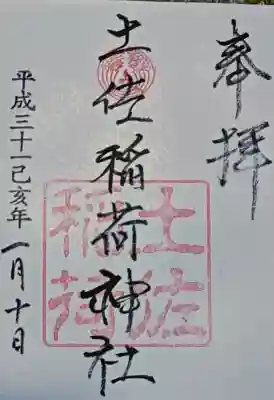 奉拝
土佐稲荷神社
土佐
稲荷
平成三十一己亥年 一月十日